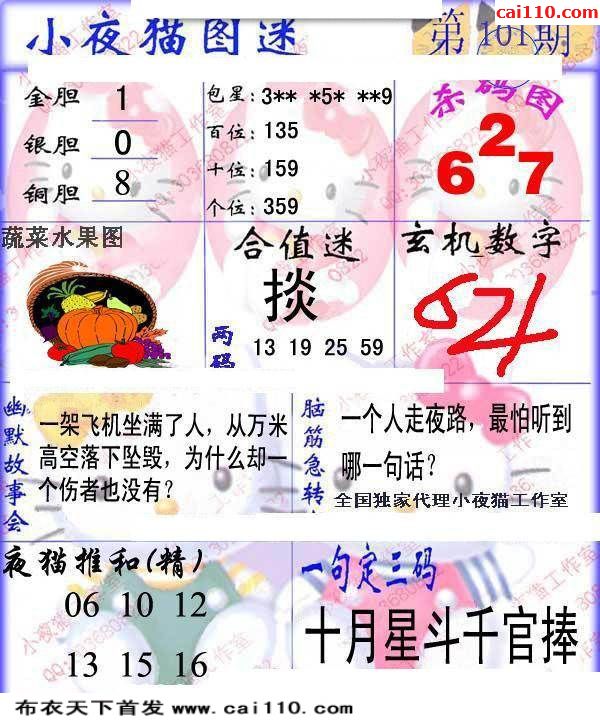 cai110.com
小夜猫图迷
第101期
金胆 1
银胆 0
铜胆 8
包星: 3** *5* **9
百位: 135
十位: 159
个位: 359
杀码图
627
蔬菜水果图
合值迷
掞
两码
13 19 25 59
玄机数字
幽默故事会
一架飞机坐满了人，从万米
高空落下坠毁，为什么却一
个伤者也没有？
脑筋急转
一个人走夜路，最怕听到
哪一句话？
全国独家代理小夜猫工作室
夜猫推和(精)
06 10 12
13 15 16
一句定三码
十月星斗千官捧
布衣天下首发 www.cai110.com